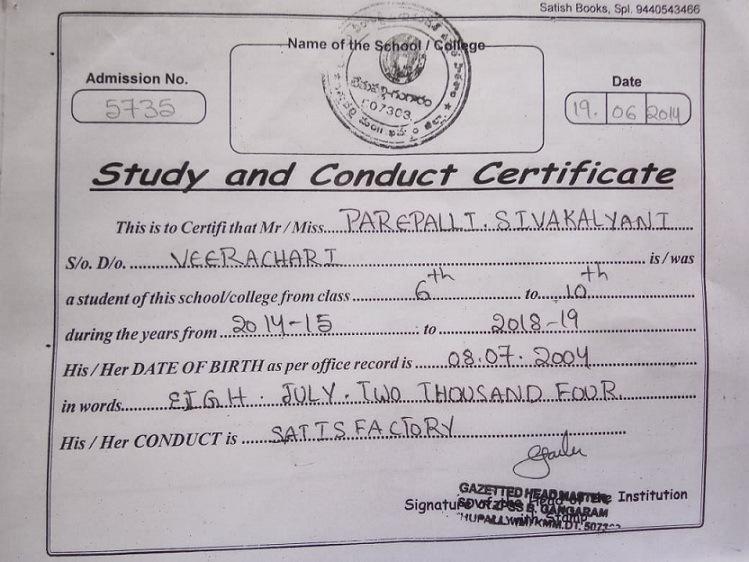 Satish Books, Spl. 9440543466
Name of the School / College
Admission No.
5735
507303
Date
19. 06 2014
Study and Conduct Certificate
This is to Certifi that Mr / Miss....PAREPALLI. SIVAKALYANI
S/o. D/o. ........VEERACHARI........ is / was
a student of this school/college from class ........6th........ to....10th........
during the years from ...2014-15........ to ........2018-19........
His / Her DATE OF BIRTH as per office record is ......08.07.2004
in words........EIGH. JULY. TWO THOUSAND FOUR.
His / Her CONDUCT is ....SATISFACTORY........
GAZETTED HEAD MASTER
Signature of the Head of the Institution
with Stamp
GANGARAM